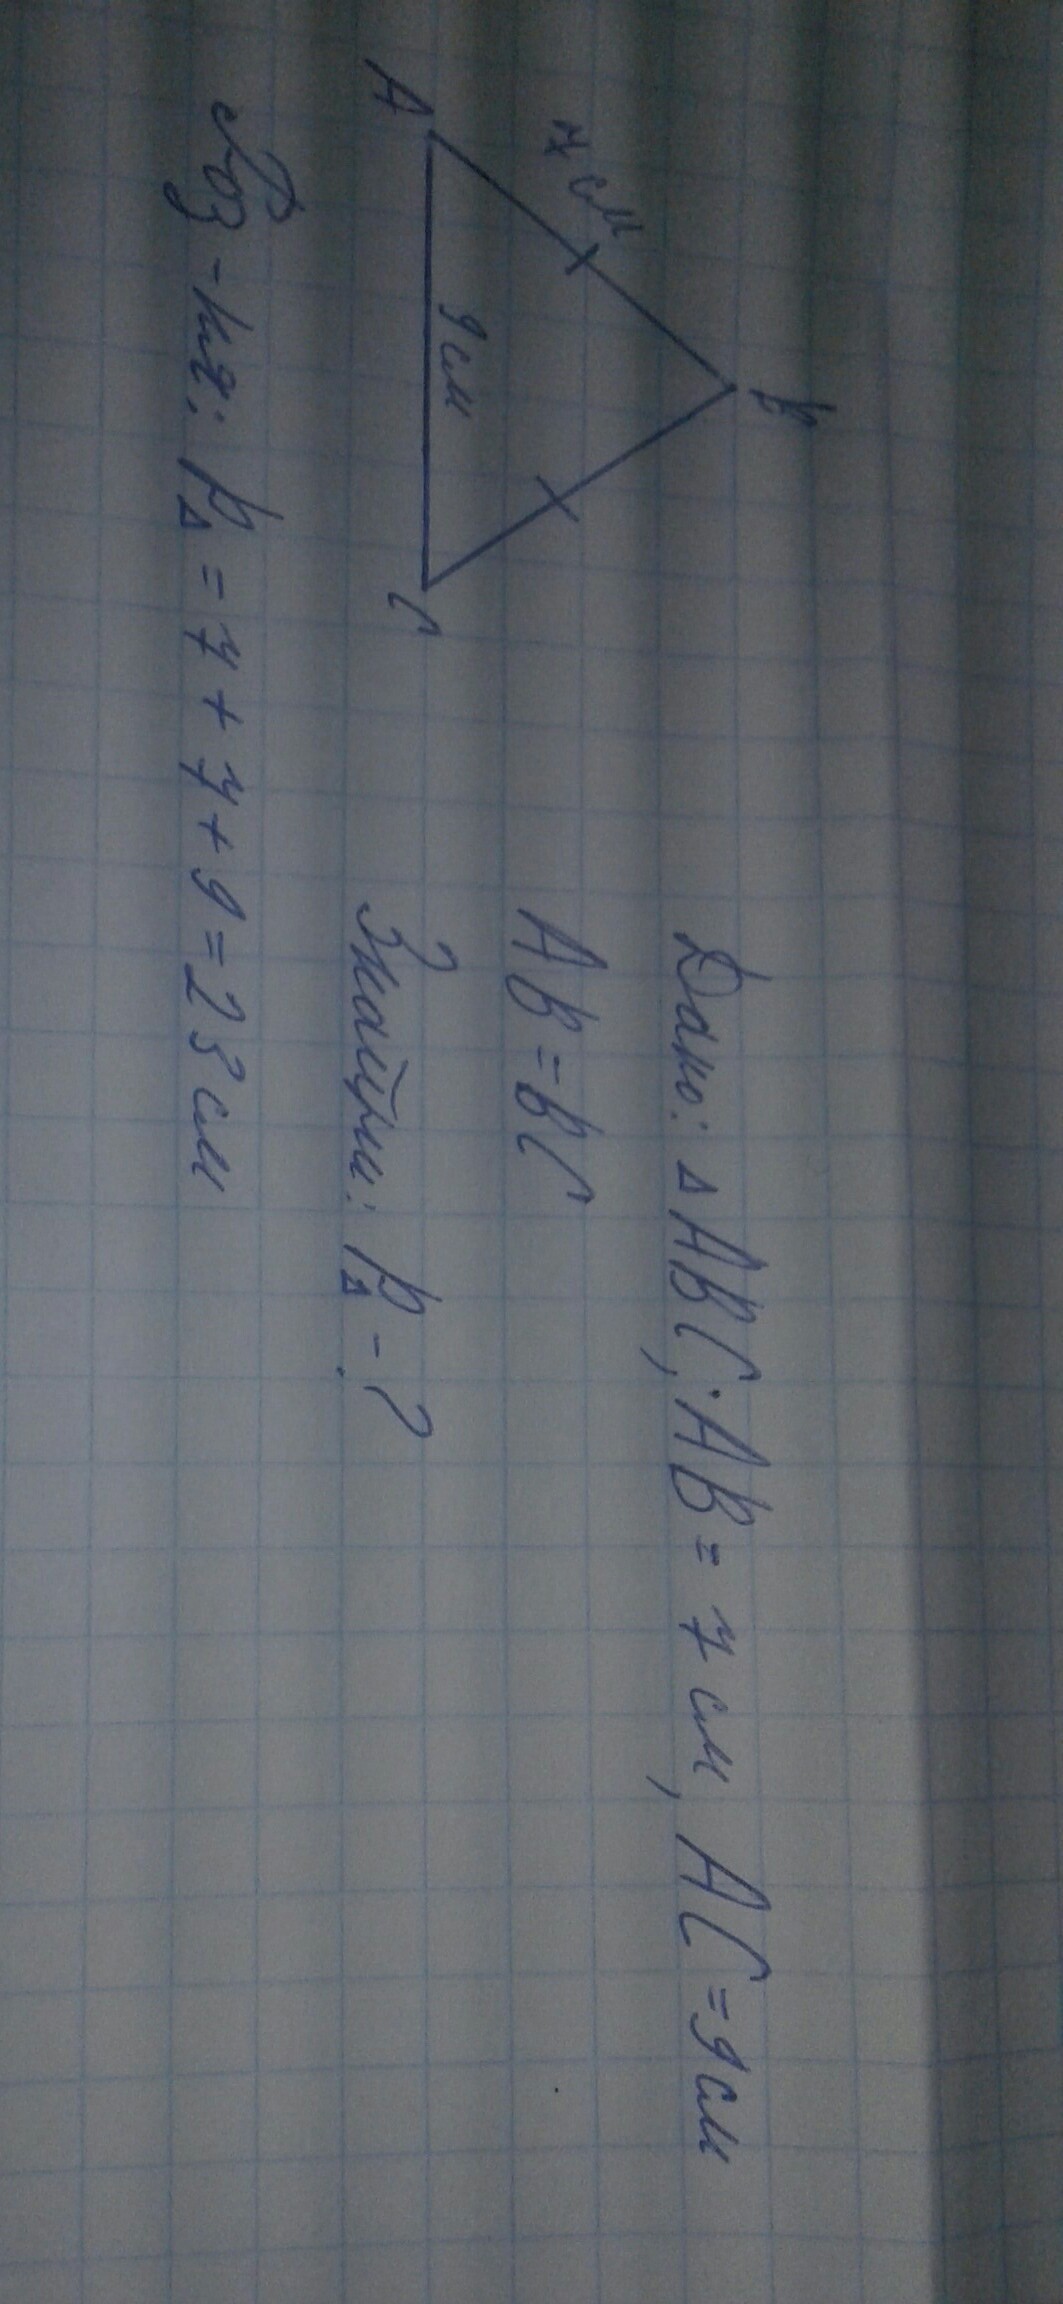 Дано: △ABC; AB = 7 см, AC = 9 см
AB = BC
Знайти: P△ - ?
B
7 см
9 см
A
C
Роз-ня: P△ = 7 + 7 + 9 = 23 см